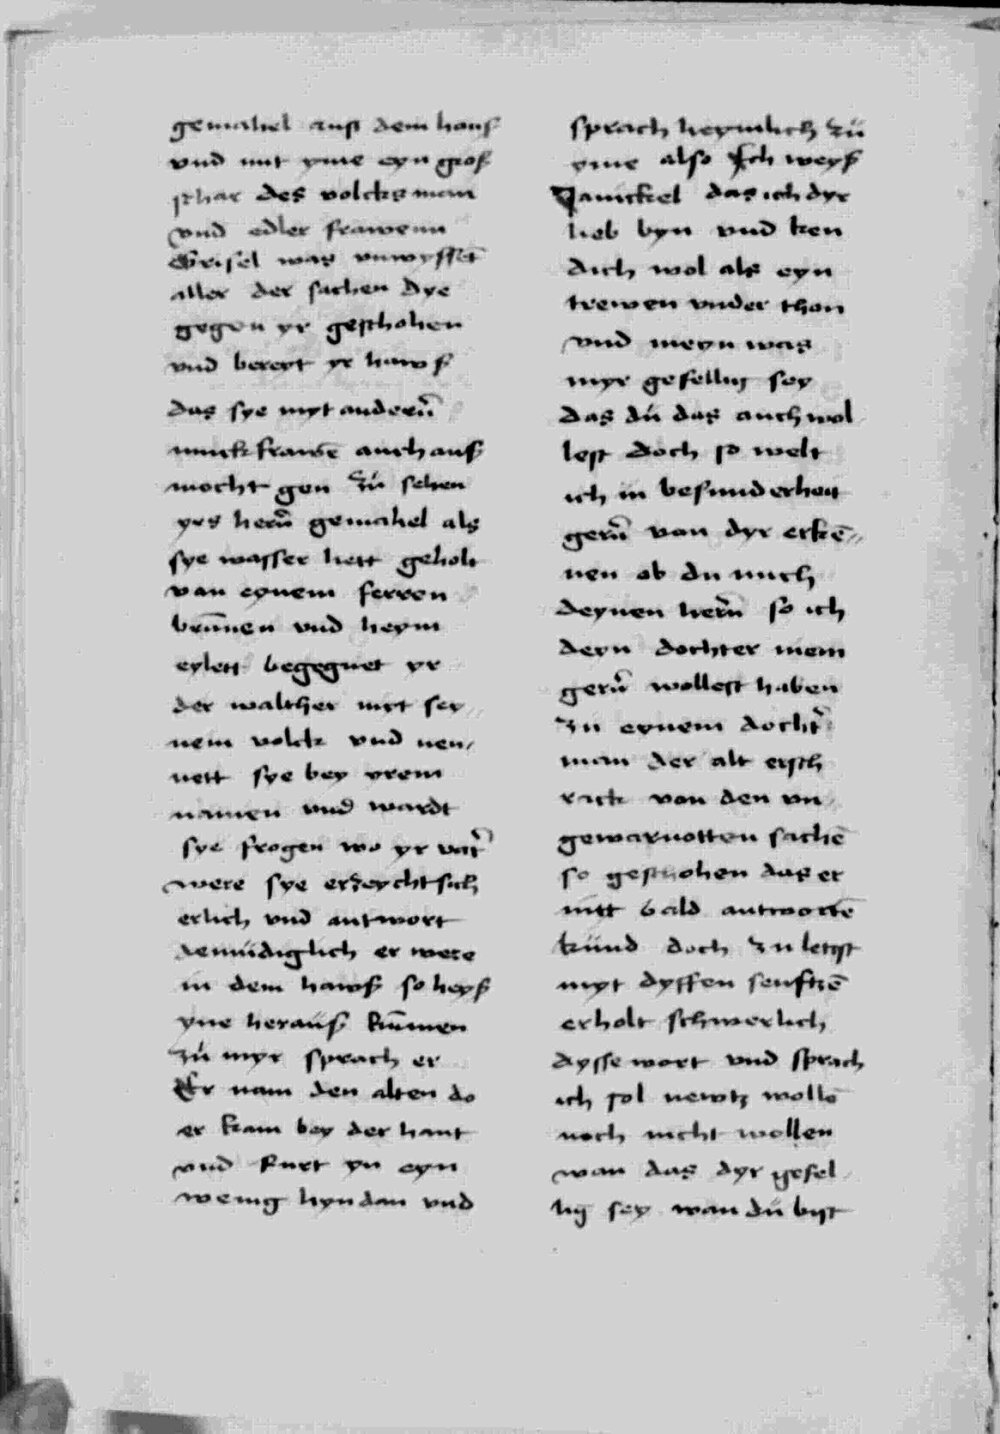 gemahel auß dem hauß
vnd mit yme eyn groß
schar des volcks man
vnd edler frawenn
Grisel was vnwyssēt
aller der sachen dye
gegen yr geschohen
vnd bereyt yr hawß
das sye myt anderñ
iunckfrawē auch auß
mocht gen zü sehen
yrs herñ gemahel als
sye wasser hett geholt
van eynem ferren
brūnen vnd heym
eylett begegnet yr
der walther myt sey
nem volck vnd nen/
nett sye bey yrem
namen vnd wardt
sye frogen wo yr vat'
were sye erzeycht sich
erlich vnd antwort
demüdiglich er were
in dem hawß so heyß
yne herauß kūmen
zü myr sprach er
Er nam den alten do
er kam bey der hant
vnd furt yn eyn
wenig hyndan vnd
sprach heymlich zü
yme also Ich weyß
Janickel das ich dyr
lieb byn vnd ken
dich wol als eyn
trewen vnder thon
vnd meyn was
myr gefellig sey
das dü das auch wol
lest doch so welt
ich in besunderheit
gerñ van dyr erkē„
nen ob du mich
deynen herñ so ich
deyn dochter niem
gerñ wollest haben
zu eynem docht'
man der alt ersch
rack von den vn
gewarnotten sachē
so geschohen das er
nitt bald antwortē
künd doch zu letzst
myt dyffen seuftzē
erholt schwerlich
dysse wort vnd sprach
ich sol newtz wollē
noch nicht wollen
wan das dyr gefel
lig sey wan dü byst